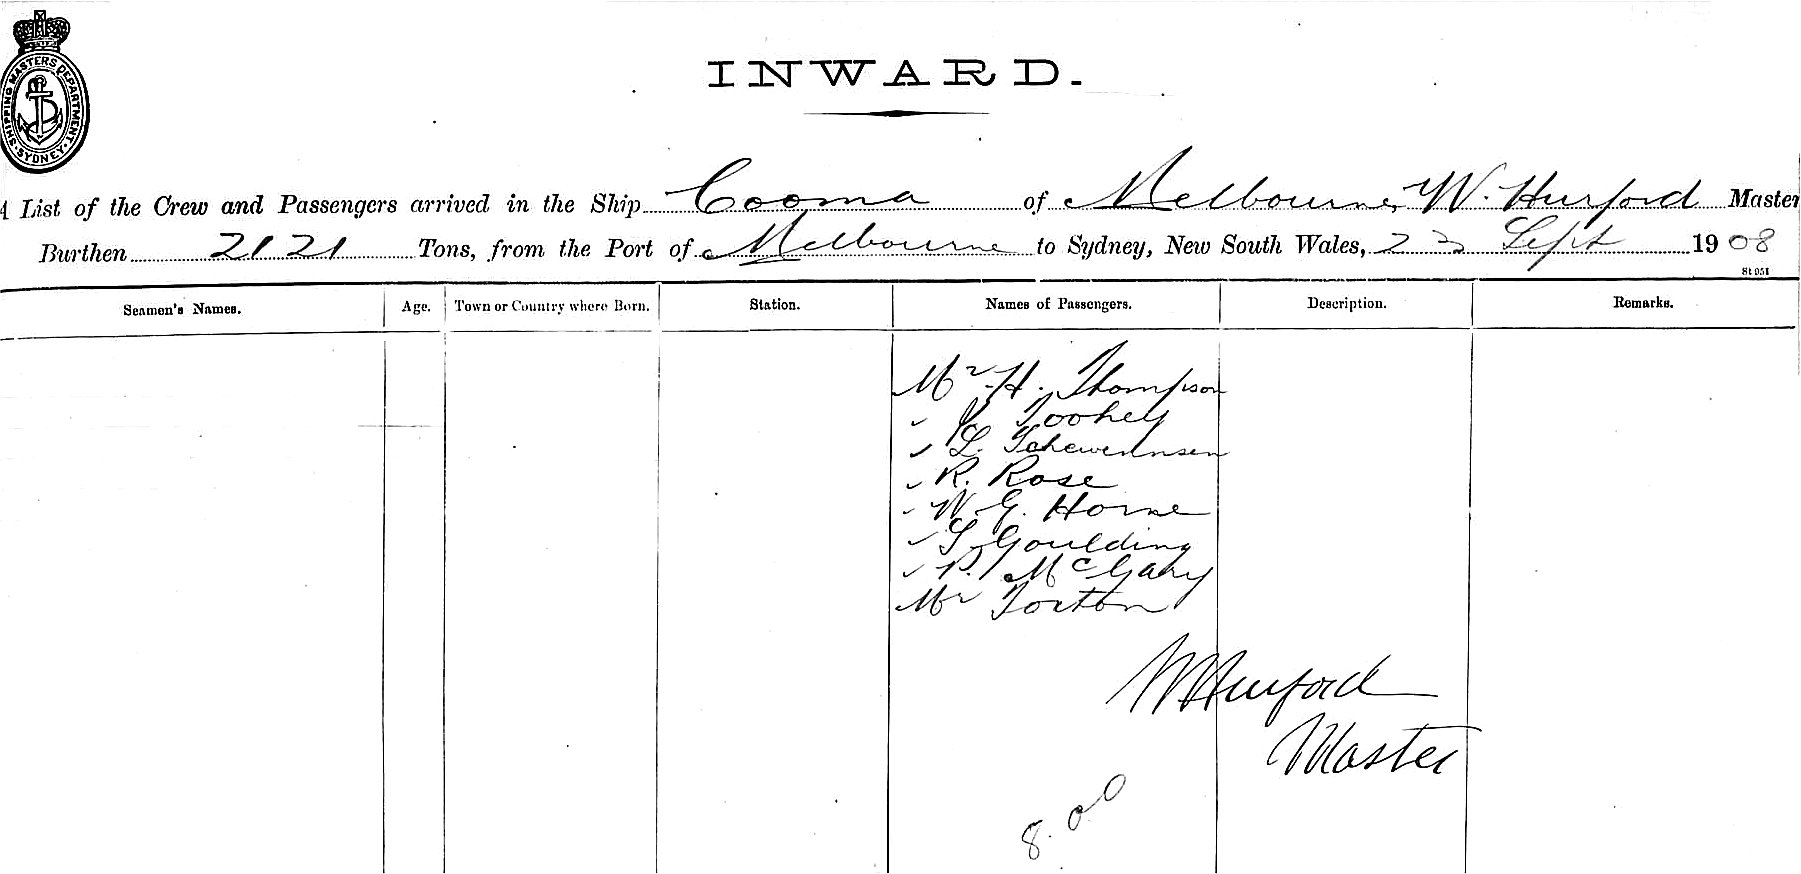 SHIPPING MASTERS DEPARTMENT. SYDNEY.
INWARD.
A List of the Crew and Passengers arrived in the Ship Cooma of Melbourne, W. Hurford Master
Burthen 2121 Tons, from the Port of Melbourne to Sydney, New South Wales, 23 Sept 1908
St 051
Seamen's Names. Age. Town or Country where Born. Station. Names of Passengers. Description. Remarks.
Mr H. Thompson
" Toohey
" L.
" R. Rose
" W. G. Horne
" Goulding
" P. McGary
Mr
W Hurford
Master
8.